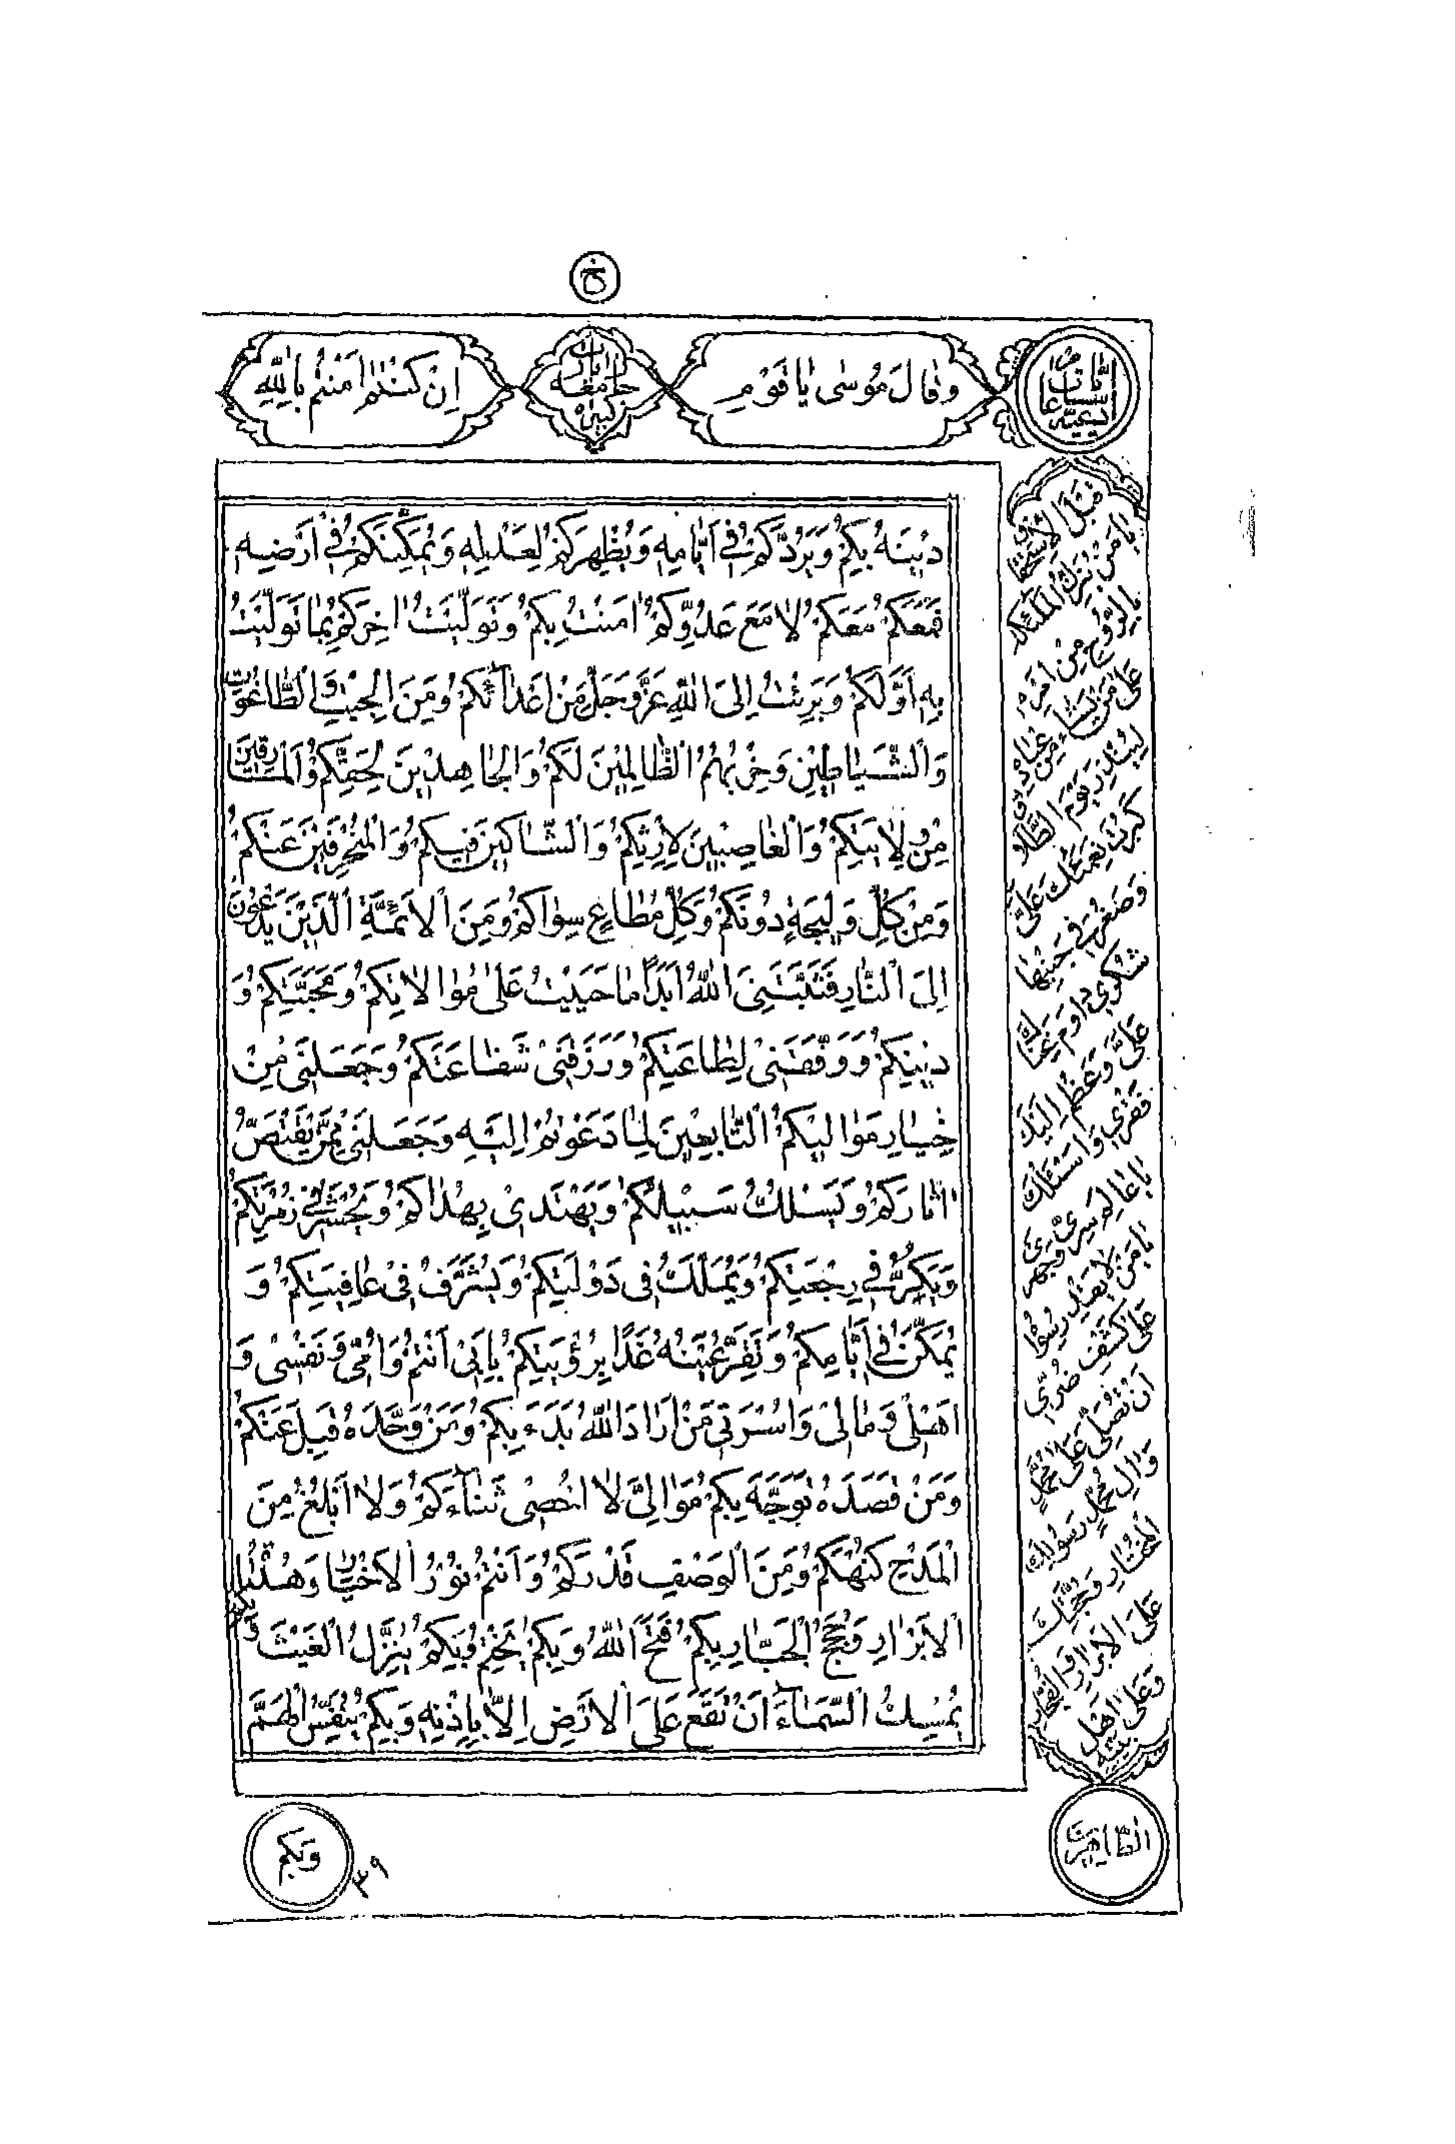 خ
وَقَالَ مُوسٰى يَا قَوْمِ
زيارت جامعه كبيره
اِنْ كُنْتُمْ اٰمَنْتُمْ بِاللّٰهِ
دِيْنَهُ بِكُمْ وَيَرُدَّكُمْ فِي اَيَّامِهِ وَيُظْهِرَكُمْ لِعَدْلِهِ وَيُمَكِّنَكُمْ فِي اَرْضِهِ
فَمَعَكُمْ مَعَكُمْ لَا مَعَ عَدُوِّكُمْ اٰمَنْتُ بِكُمْ وَتَوَلَّيْتُ اٰخِرَكُمْ بِمَا تَوَلَّيْتُ
بِهِ اَوَّلَكُمْ وَبَرِئْتُ اِلَى اللّٰهِ عَزَّ وَجَلَّ مِنْ اَعْدَائِكُمْ وَمِنَ الْجِبْتِ وَالطَّاغُوتِ
وَالشَّيَاطِيْنِ وَحِزْبِهِمُ الظَّالِمِيْنَ لَكُمْ وَالْجَاحِدِيْنَ لِحَقِّكُمْ وَالْمَارِقِيْنَ
مِنْ وِلَايَتِكُمْ وَالْغَاصِبِيْنَ لِاِرْثِكُمْ وَالشَّاكِّيْنَ فِيكُمْ وَالْمُنْحَرِفِيْنَ عَنْكُمْ
وَمِنْ كُلِّ وَلِيْجَةٍ دُونَكُمْ وَكُلِّ مُطَاعٍ سِوَاكُمْ وَمِنَ الْاَئِمَّةِ الَّذِيْنَ يَدْعُوْنَ
اِلَى النَّارِ فَثَبَّتَنِيَ اللّٰهُ اَبَدًا مَا حَيِيْتُ عَلٰى مُوَالَاتِكُمْ وَمَحَبَّتِكُمْ وَ
دِيْنِكُمْ وَوَفَّقَنِيْ لِطَاعَتِكُمْ وَرَزَقَنِيْ شَفَاعَتَكُمْ وَجَعَلَنِيْ مِنْ
خِيَارِ مَوَالِيْكُمُ التَّابِعِيْنَ لِمَا دَعَوْتُمْ اِلَيْهِ وَجَعَلَنِيْ مِمَّنْ يَقْتَصُّ
اٰثَارَكُمْ وَيَسْلُكُ سَبِيْلَكُمْ وَيَهْتَدِيْ بِهُدَاكُمْ وَيُحْشَرُ فِي زُمْرَتِكُمْ
وَيَكِرُّ فِي رَجْعَتِكُمْ وَيُمَلَّكُ فِي دَوْلَتِكُمْ وَيُشَرَّفُ فِيْ عَافِيَتِكُمْ وَ
يُمَكَّنُ فِي اَيَّامِكُمْ وَتَقِرُّ عَيْنُهُ غَدًا بِرُؤْيَتِكُمْ بِاَبِيْ اَنْتُمْ وَاُمِّيْ وَنَفْسِيْ وَ
اَهْلِيْ وَمَالِيْ وَاُسْرَتِيْ مَنْ اَرَادَ اللّٰهَ بَدَءَ بِكُمْ وَمَنْ وَحَّدَهُ قَبِلَ عَنْكُمْ
وَمَنْ قَصَدَهُ تَوَجَّهَ بِكُمْ مَوَالِيَّ لَا اُحْصِيْ ثَنَاءَكُمْ وَلَا اَبْلُغُ مِنَ
الْمَدْحِ كُنْهَكُمْ وَمِنَ الْوَصْفِ قَدْرَكُمْ وَاَنْتُمْ نُوْرُ الْاَخْيَارِ وَهُدَاةُ
الْاَبْرَارِ وَحُجَجُ الْجَبَّارِ بِكُمْ فَتَحَ اللّٰهُ وَبِكُمْ يَخْتِمُ وَبِكُمْ يُنَزِّلُ الْغَيْثَ وَبِكُمْ
يُمْسِكُ السَّمَاءَ اَنْ تَقَعَ عَلَى الْاَرْضِ اِلَّا بِاِذْنِهِ وَبِكُمْ يُنَفِّسُ الْهَمَّ
يَا مَنْ يُنَزِّلُ الْمَلٰئِكَةَ
بِالرُّوْحِ مِنْ اَمْرِهِ
عَلٰى مَنْ يَشَاءُ مِنْ عِبَادِهِ
لِيُنْذِرَ يَوْمَ التَّلَاقِ
كَبُرَتْ نِعْمَتُكَ عَلَيَّ
وَصَغُرَ فِي جَنْبِهَا
شُكْرِيْ دَامَ غِنَاكَ
عَنِّيْ وَعَظُمَ اِلَيْكَ
فَقْرِيْ وَاَسْئَلُكَ
يَا عَالِمَ سِرِّيْ وَجَهْرِيْ
يَا مَنْ لَا يَقْدِرُ سِوَاهُ
عَلٰى كَشْفِ ضُرِّيْ
اَنْ تُصَلِّيَ عَلٰى مُحَمَّدٍ
وَاٰلِ مُحَمَّدٍ رَسُوْلِكَ
الْمُخْتَارِ وَحُجَّتِكَ
عَلَى الْاَبْرَارِ وَالْفُجَّارِ
وَعَلٰى اَهْلِ بَيْتِهِ
الطَّاهِرِيْنَ
وَبِكُمْ
٣٩